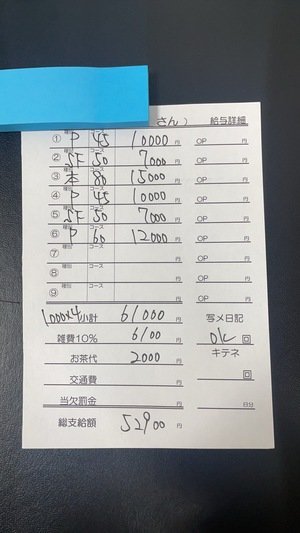 さん） 給与詳細
① 種別 P コース 45 10000 円 OP 円
② 種別 SF コース 50 7000 円 OP 円
③ 種別 本 コース 80 15000 円 OP 円
④ 種別 P コース 45 10000 円 OP 円
⑤ 種別 SF コース 50 7000 円 OP 円
⑥ 種別 P コース 60 12000 円 OP 円
⑦ 種別 コース 円 OP 円
⑧ 種別 コース 円 OP 円
⑨ 種別 コース 円 OP 円
1000×4 小計 61000 円 写メ日記
雑費10% 6100 円 OK 回
お茶代 2000 円 キテネ
交通費 円 回
当欠罰金 円 日分
総支給額 52900 円